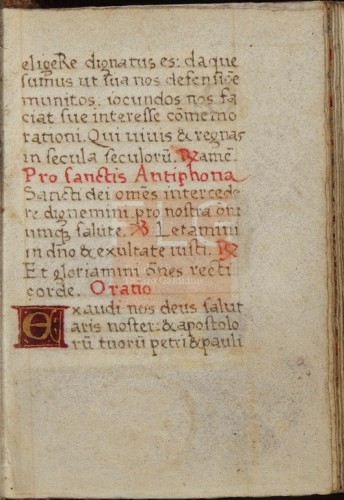 eligeRe dignatus es: da que
sumus ut sua nos defensiōe
munitos: iocundos nos fa
ciat sue interesse cōmemo
rationi. Qui uiuis & regnas
in secula seculorū. ℟ amē.
Pro sanctis Antiphona
Sancti dei omēs intercede
re dignemini pro nostra ōn
iumqȝ salute. ℣ Letamini
in dn̄o & exultate iusti. ℟
Et gloriamini ōnes recti
corde. Oratio
Exaudi nos deus salut
aris noster: & apostolo
rū tuorū petri & pauli